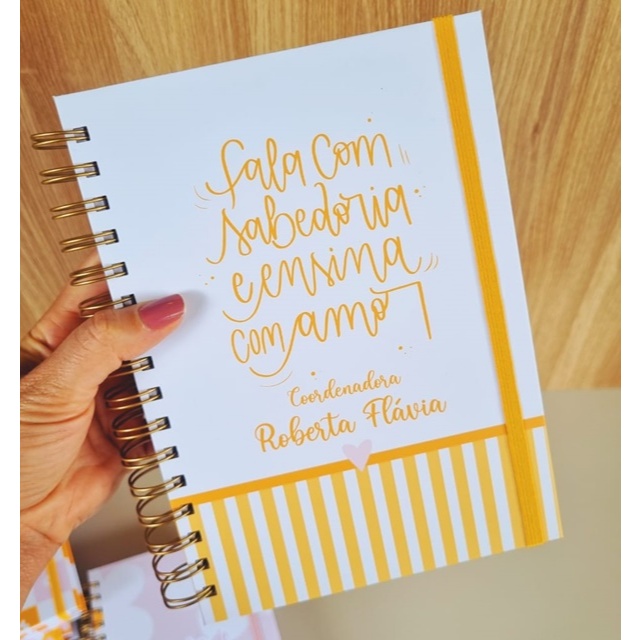 fala com
sabedoria
e ensina
com amor
Coordenadora
Roberta Flávia